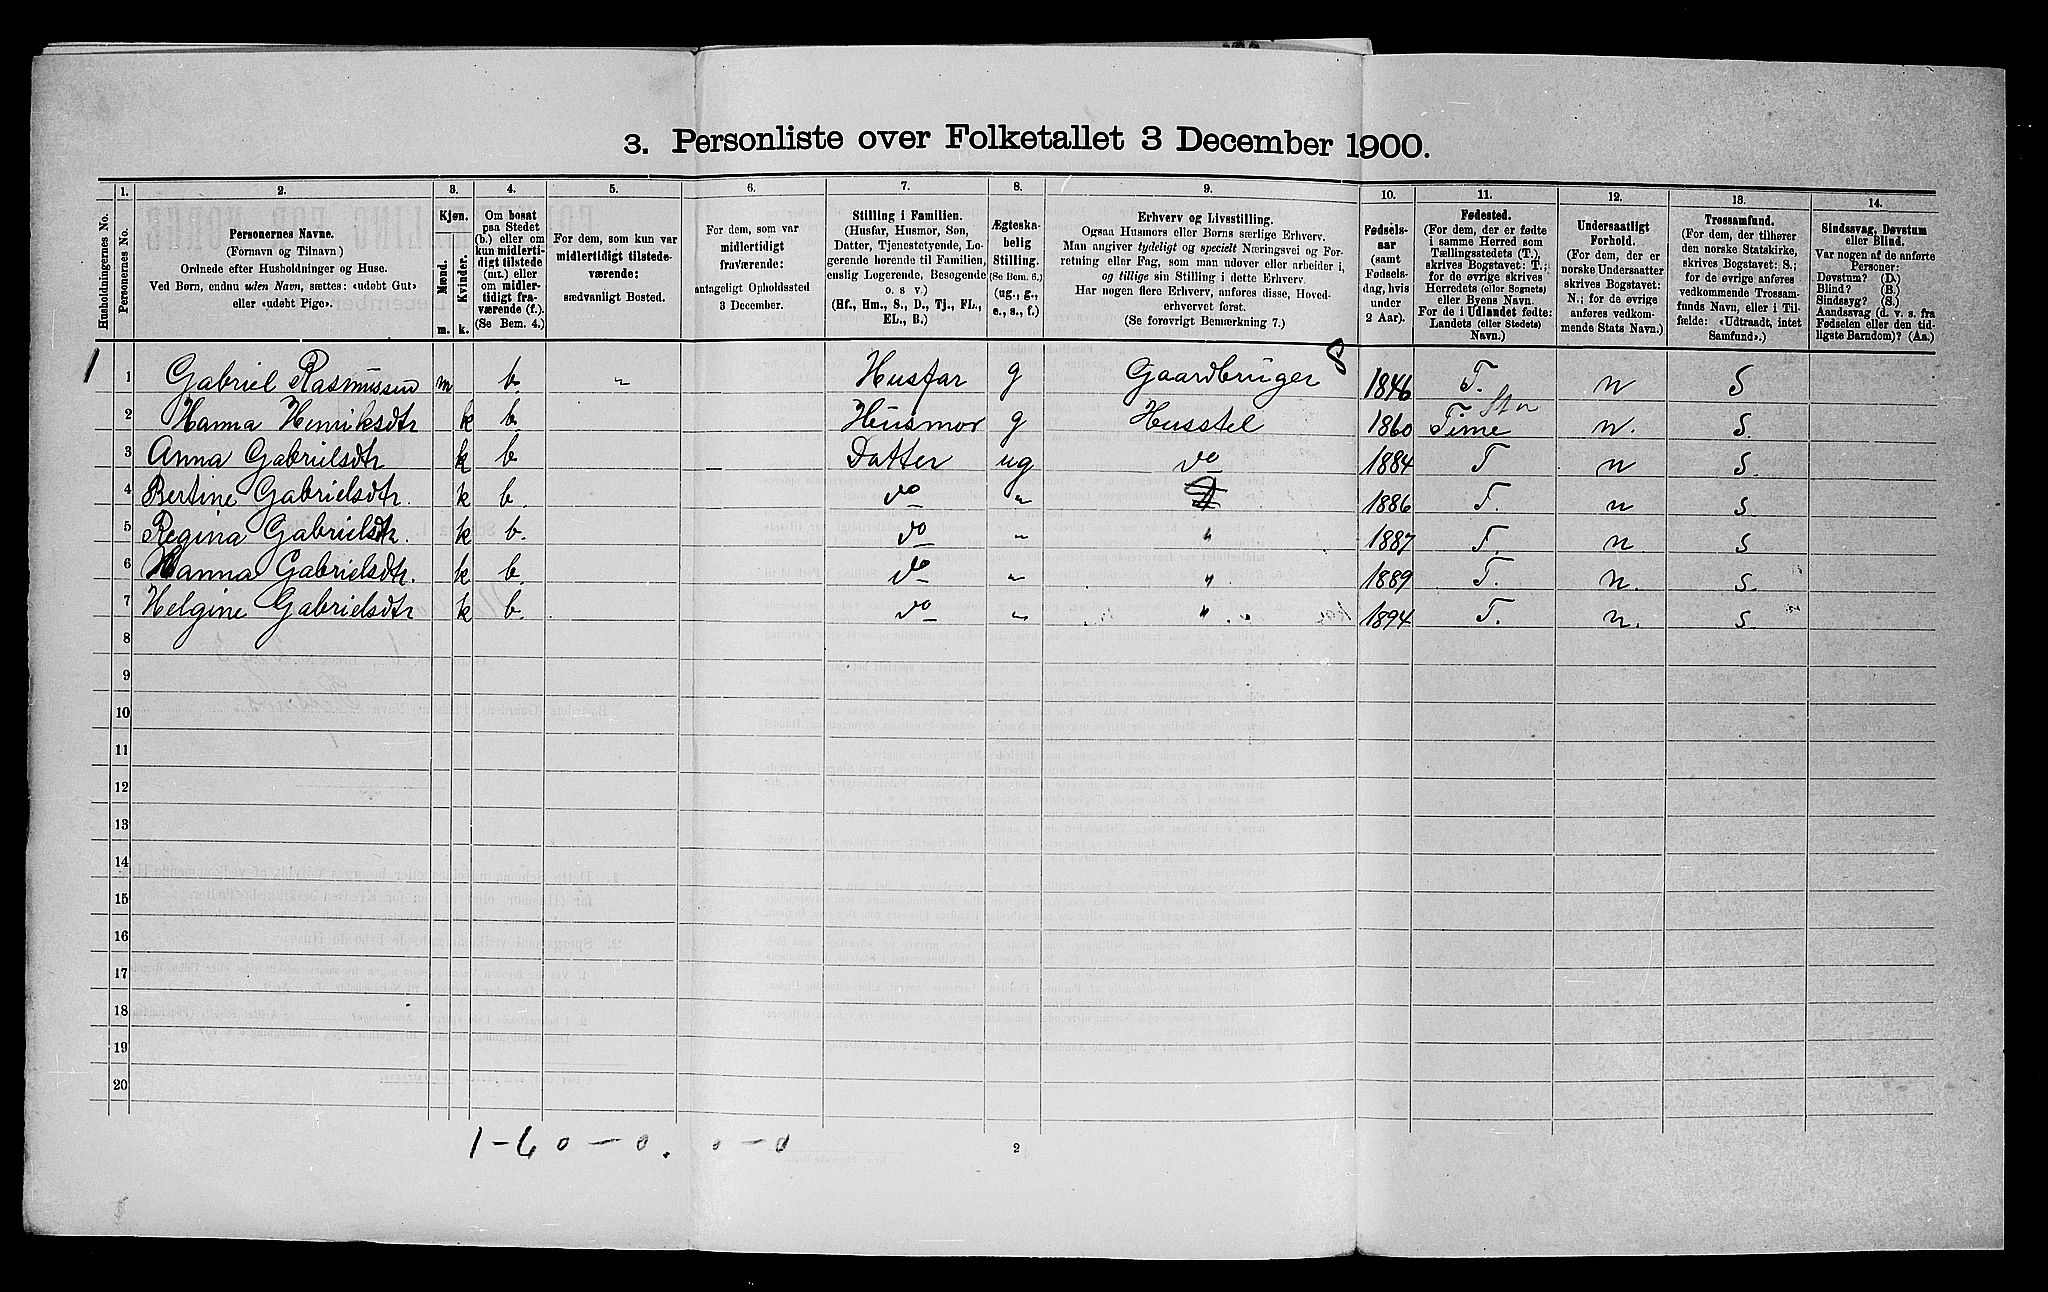 3. Personliste over Folketallet 3 December 1900.
1. 2. 3. 4. 5. 6. 7. 8. 9. 10. 11. 12. 13. 14.
Husholdningernes No.
Personernes No.
Personernes Navne.
(Fornavn og Tilnavn)
Ordnede efter Husholdninger og Huse.
Ved Børn, endnu uden Navn, sættes: «udøbt Gut»
eller «udøbt Pige».
Kjøn.
Mænd.
Kvinder.
m. k.
Om bosat
paa Stedet
(b.) eller om
kun midlerti-
digt tilstede
(mt.) eller
om midler-
tidigt fra-
værende (f.).
(Se Bem. 4.)
For dem, som kun var
midlertidigt tilstede-
værende:
sædvanligt Bosted.
For dem, som var
midlertidigt
fraværende:
antageligt Opholdssted
3 December.
Stilling i Familien.
(Husfar, Husmor, Søn,
Datter, Tjenestetyende, Lo-
gerende hørende til Familien,
enslig Logerende, Besøgende
o. s v.)
(Hf., Hm., S., D., Tj., FL.,
EL., B.)
Ægteska-
belig
Stilling.
(Se Bem. 6.)
(ug., g.,
e., s., f.)
Erhverv og Livsstilling.
Ogsaa Husmors eller Børns særlige Erhverv.
Man angiver tydeligt og specielt Næringsvei og For-
retning eller Fag, som man udøver eller arbeider i,
og tillige sin Stilling i dette Erhverv.
Har nogen flere Erhverv, anføres disse, Hoved-
erhvervet først.
(Se forøvrigt Bemærkning 7.)
Fødsels-
aar
(samt
Fødsels-
dag, hvis
under
2 Aar).
Fødested.
(For dem, der er fødte
i samme Herred som
Tællingsstedets (T.),
skrives Bogstavet: T.;
for de øvrige skrives
Herredets (eller Sognets)
eller Byens Navn.
For de i Udlandet fødte:
Landets (eller Stedets)
Navn.)
Undersaatligt
Forhold.
(For dem, der er
norske Undersaatter
skrives Bogstavet:
N.; for de øvrige
anføres vedkom-
mende Stats Navn.)
Trossamfund.
(For dem, der tilhører
den norske Statskirke,
skrives Bogstavet: S.;
for de øvrige anføres
vedkommende Trossam-
funds Navn, eller i Til-
fælde: «Udtraadt, intet
Samfund».)
Sindssvag, Døvstum
eller Blind.
Var nogen af de anførte
Personer:
Døvstum? (D.)
Blind? (B.)
Sindssyg? (S.)
Aandssvag (d. v. s. fra
Fødselen eller den tid-
ligste Barndom)? (Aa.)
1 1 Gabriel Rasmussen m b " Husfar g Gaardbruger 8 1846 T. n S
2 Hanna Henriksdtr k b Husmor g Husstel 1860 Time n. S.
3 Anna Gabrielsdtr k b Datter ug do 1884 T n S.
4 Bertine Gabrielsdtr. k b. do " 1886 T. n S
5 Regina Gabrielsdtr. k b. do " " 1887 T. n. S
6 Hanna Gabrielsdtr. k b. do " " 1889 T. n. S
7 Helgine Gabrielsdtr k b. do " " 1894 T. n. S
8
9
10
11
12
13
14
15
16
17
18
19
20
1-6 0-0. 0-0
2